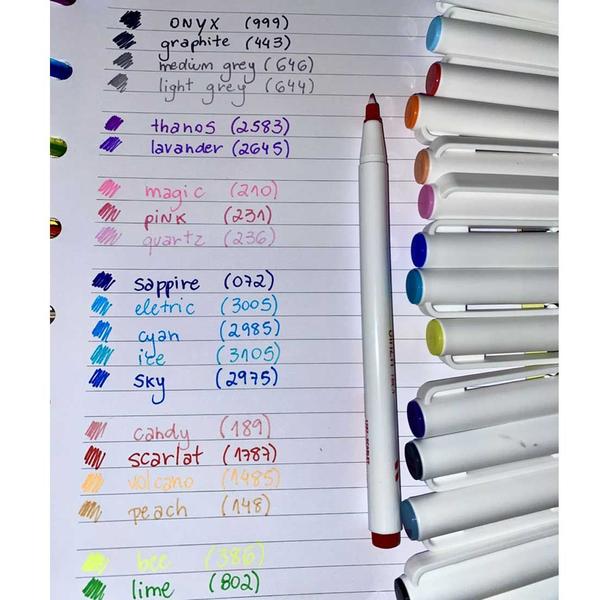 ONYX (999)
graphite (443)
medium grey (646)
light grey (644)
thanos (2583)
lavander (2645)
magic (210)
pink (231)
quartz (236)
sappire (072)
eletric (3005)
cyan (2985)
ice (3105)
sky (2975)
candy (189)
scarlat (1787)
volcano (1485)
peach (148)
bee (386)
lime (802)